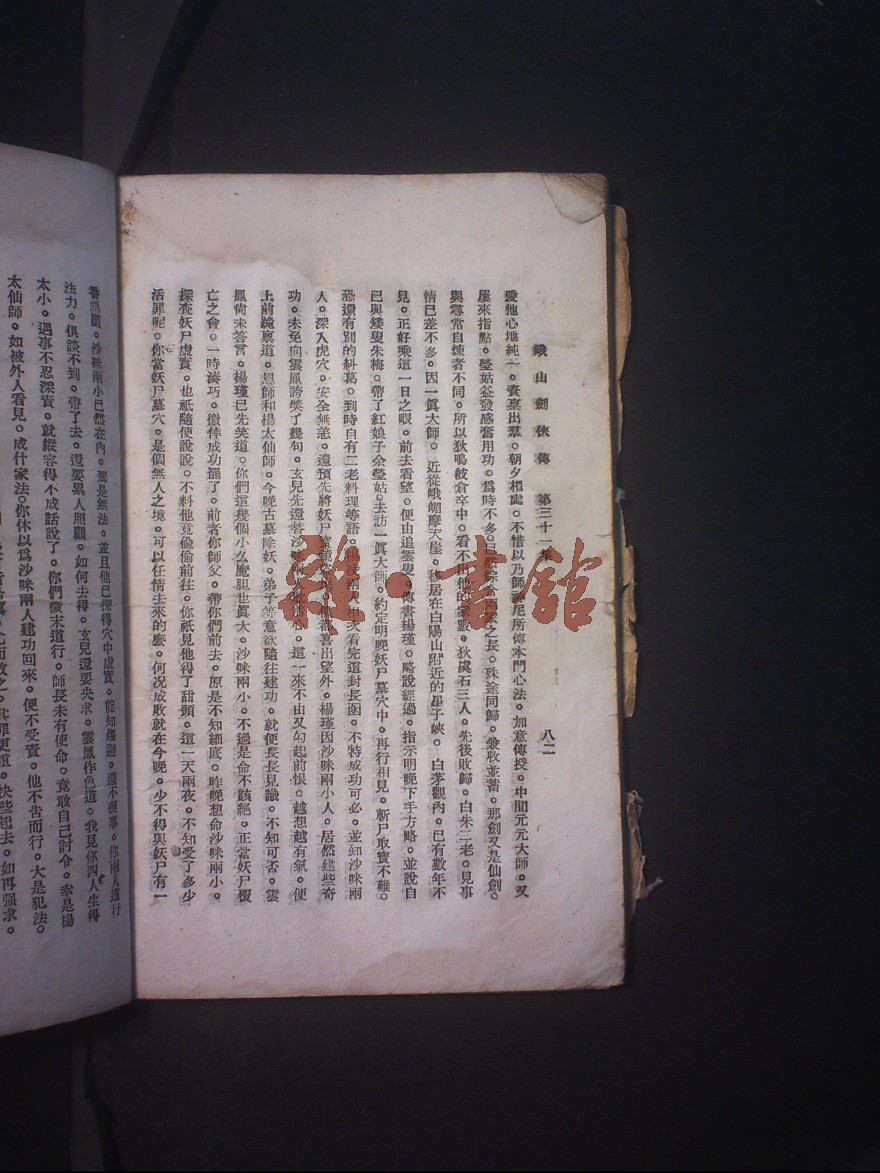 峨山劍俠傳 第三十一集 八二
愛他心地純一。資稟出羣。朝夕相處。不惜以乃師神尼所傳本門心法。加意傳授。中間元元大師。又
屢來指點。瑩姑益發感奮用功。爲時不多。已能綜合兩家之長。殊途同歸。兼收並蓄。那劍又是仙劍。
與尋常自煉者不同。所以狄鳴岐倉卒中。看不出他的家數。狄虞石三人。先後敗歸。白朱二老。見事
情已差不多。因一眞大師。近從峨嵋摩天崖。移居在白陽山附近的星子峽。白茅觀內。已有數年不
見。正好乘這一日之暇。前去看望。便由追雲叟。傳書楊瑾。略說經過。指示明晚下手方略。並說自
已與矮叟朱梅。帶了紅娘子余瑩姑。去訪一眞大師。約定明晚妖尸墓穴中。再行相見。斬尸取寶不難。
恐還有別的糾葛。到時自有二老料理等語。兩人看完這封長函。不特成功可必。並知沙咪兩
人。深入虎穴。安全無恙。還預先將妖尸喜出望外。楊瑾因沙咪兩小人。居然建些奇
功。未免向雲鳳誇獎了幾句。玄兒先還替沙咪兩人心。這一來不由又勾起前恨。越想越有氣。便
上前跪稟道。恩師和楊太仙師。今晚古墓除妖。弟子等意欲隨往建功。就便長長見識。不知可否。雲
鳳倘未答言。楊瑾已先笑道。你們這幾個小么麽胆也眞大。沙咪兩小。不過是命不該絕。正當妖尸覆
亡之會。一時湊巧。徼倖成功罷了。前者你師父。帶你們前去。原是不知細底。昨晚想命沙咪兩小。
探查妖尸虛實。也祇隨便說說。不料他竟偷偷前往。你祇見他得了甜頭。這一天兩夜。不知受了多少
活罪呢。你當妖尸墓穴。是個無人之境。可以任情去來的麽。何況成敗就在今晚。少不得與妖尸有一
番惡鬭。沙咪兩小已然在內。那是無法。並且他已探得穴中虛實。能知趨避。還不礙事。你兩人道行
法力。俱談不到。帶了去。還要累人照顧。如何去得。玄兒還要央求。雲鳳作色道。我見你四人生得
太小。遇事不忍深責。就縱容得不成話說了。你們微末道行。師長未有使命。竟敢自己討令。幸是楊
太仙師。如被外人看見。成什家法。你休以爲沙咪兩人建功回來。便不受責。他不吿而行。大是犯法。
快些起去。如再强求。